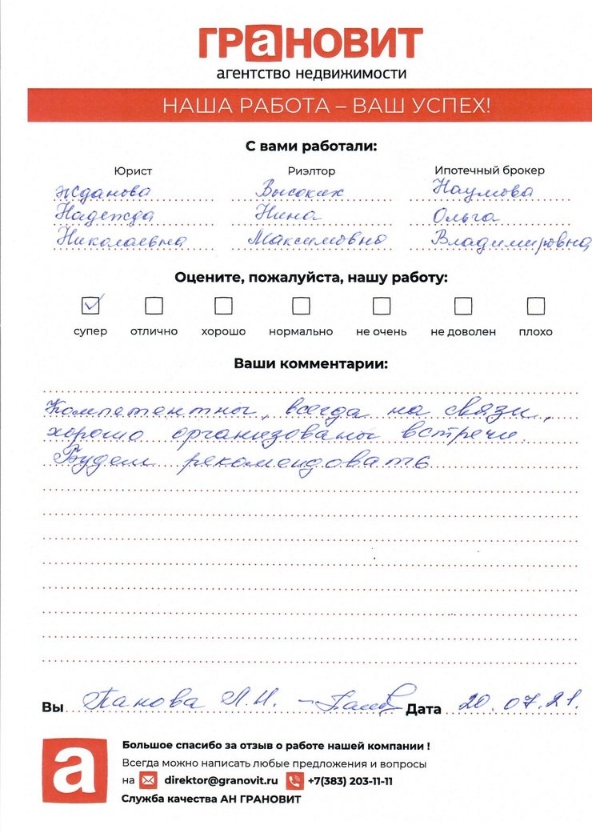 ГРаНОВИТ
агентство недвижимости
НАША РАБОТА – ВАШ УСПЕХ!
С вами работали:
Юрист Риэлтор Ипотечный брокер
Жданова Высоких Наумова
Надежда Нина Ольга
Николаевна Максимовна Владимировна
Оцените, пожалуйста, нашу работу:
супер отлично хорошо нормально не очень не доволен плохо
Ваши комментарии:
Компетентны, всегда на связи,
хорошо организованы встречи.
Будем рекомендовать
Вы Панова Л.И. Дата 20.07.21.
а
Большое спасибо за отзыв о работе нашей компании !
Всегда можно написать любые предложения и вопросы
на direktor@granovit.ru +7(383) 203-11-11
Служба качества АН ГРАНОВИТ